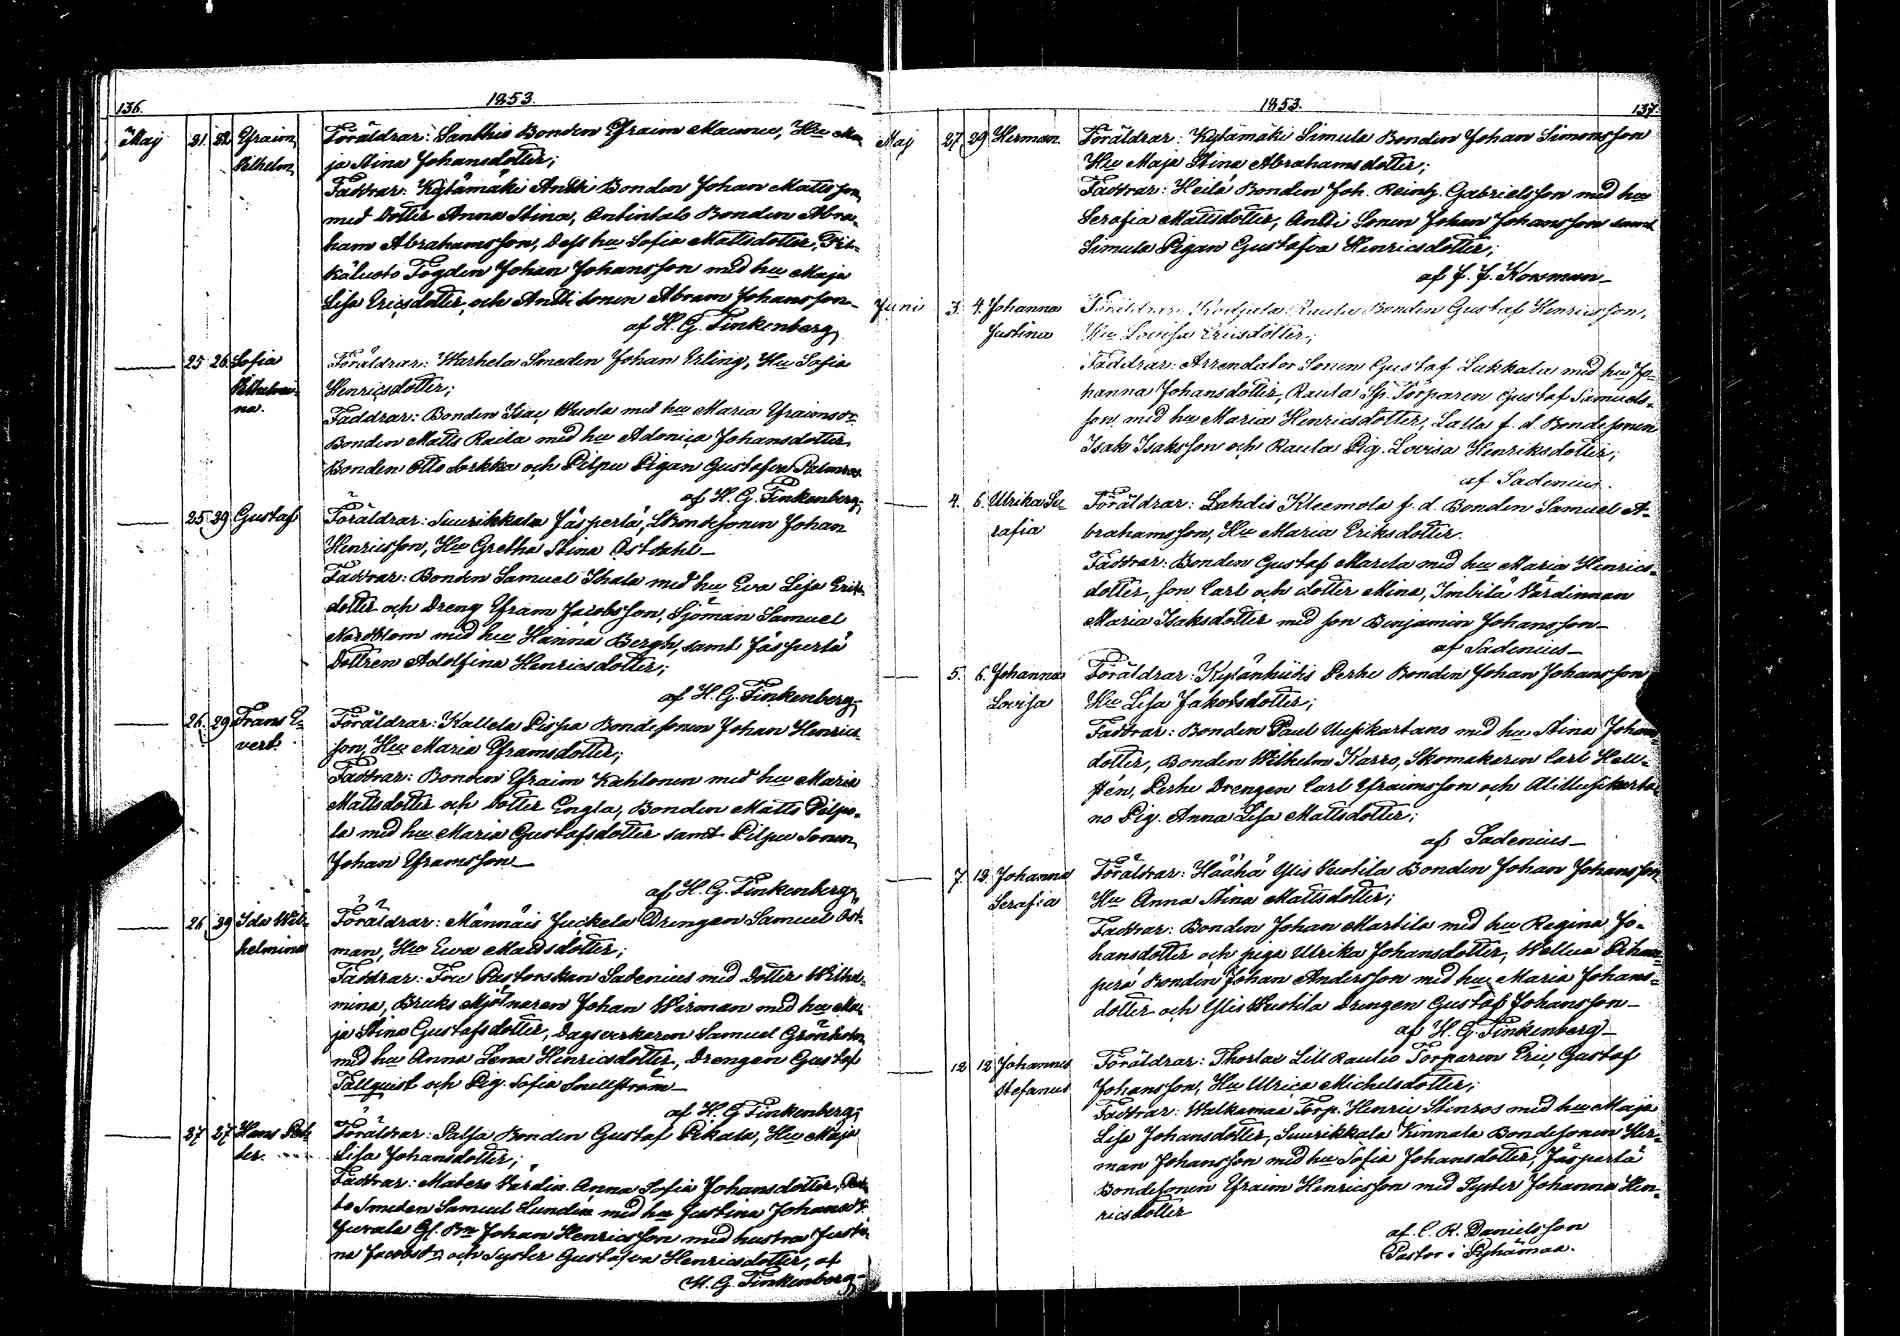 136.
1853.
May 21. 22. Efraim Föräldrar: Santhis Bonden Efraim Maunu, Hu Ma-
Vilhelm ja Stina Johansdotter;
Faddrar: Kylämäki Antti Bonden Johan Mattsson
med dotter Anna Stina, Antintalo Bonden Abra-
ham Abrahamsson, dess hu Sofia Mattsdotter,
Fogden Johan Johansson med hu Maja
Lisa Ericsdotter och Antti Sonen Abram Johansson
af H. G. Finkenberg
25 26. Sofia Föräldrar: Smeden Johan Erling, Hu Sofia
Vilhelmi- Henricsdotter;
na. Faddrar: Bonden Isac Wuola med hu Maria Efraimsdr
Bonden Matts Raila med hu Adonica Johansdotter
Bonden Otto Sorkka och Pilpu Pigan Gustafva Palmros
af H. G. Finkenberg
25. 29 Gustaf Föräldrar: Suurikkala Jäsperlä, Bondesonen Johan
Henricsson, Hu Gretha Stina Östdahl
Faddrar: Bonden Samuel Ihala med hu Eva Lisa Eriks
dotter och Dreng Efraim Jacobsson, Sjöman Samuel
Nordblom med hu Hanna Bergh, samt Jäsperlä
Dottren Adolfina Henricsdotter;
af H. G. Finkenberg
26. 29 Frans E- Föräldrar: Kallela Pispa Bondesonen Johan Henrics-
vert. son, Hu Maria Eframsdotter;
Faddrar: Bonden Efraim Kahlonen med hu Maria
Mattsdotter och Dotter Engla, Bonden Matts Pilpo-
la med hu Maria Gustafsdotter samt Pilpu Sonen
Johan Eframsson
af H. G. Finkenberg
26 29 Ida Wil- Föräldrar: Männäis Juckola Drengen Samuel Öst-
helmina man, Hu Ewa Mattsdotter;
Faddrar: Fru Pastorskan Sadenius med Dotter Wilhel-
mina, Bruks Mjölnaren Johan Wirman med hu Ma-
ja Stina Gustafsdotter, Dagsverkaren Samuel Grönholm
med hu Anna Lena Henricsdotter, Drengen Gustaf
Tallquist och Pig. Sofia Snellström
af H. G Finkenberg
27 27 Hans Pet- Föräldrar: Salsa Bonden Gustaf Pikala, Hu Maja
ter. Lisa Johansdotter;
Faddrar: Matero Värdin. Anna Sofia Johansdotter,
Smeden Samuel Lundin med hu Justina Johansdr
Juvala Gl. Bn Johan Henricsson med hustru Justi-
na Jacobsdr och Syster Gustafva Henricsdotter, af
H. G. Finkenberg
1853.
137.
May 27 29 Herman Föräldrar: Kylämäki Simula Bonden Johan Simonsson
Hu Maja Stina Abrahamsdotter;
Faddrar: Heilä Bonden Joh. Reinh. Gabrielsson med hu
Serafia Mattsdotter, Antti Sonen Johan Johansson samt
Simula Pigan Gustafva Henricsdotter;
af J. J. Korsman
Juni 3. 4. Johanna Föräldrar: Kodjala Raula Bonden Gustaf Henricsson,
Justina Hu Lovisa Ericsdotter;
Faddrar: Arrendator Sonen Gustaf Lukkala med hu Jo-
hanna Johansdotter, Raula Sp. Torparen Gustaf Samuels-
son, med hu Maria Henricsdotter, Lalla f. d. Bondesonen
Isak Isaksson och Raula Pig. Lovisa Henriksdotter;
af Sadenius.
4. 6. Ulrika Se- Föräldrar: Lahdis Kleemola f. d. Bonden Samuel A-
rafia brahamsson, Hu Maria Eriksdotter.
Faddrar: Bonden Gustaf Marila med hu Maria Henrics-
dotter, son Carl och dotter Mina, Imbilä Värdinnan
Maria Isaksdotter med son Benjamin Johansson
af Sadenius
5. 6. Johanna Föräldrar: Kylänhiitis Perhe Bonden Johan Johansson
Lovisa Hu Lisa Jakobsdotter;
Faddrar: Bonden Paul Uusikartano med hu Stina Johans-
dotter, Bonden Wilhelm Karro, Skomakeren Carl Hell-
stén, Perhe Drengen Carl Efraimsson och
no Pig. Anna Lisa Mattsdotter;
af Sadenius
7. 12. Johanna Föräldrar: Häähä Ylis Vustila Bonden Johan Johansson
Serafia Hu Anna Stina Mattsdotter;
Faddrar: Bonden Johan Martila med hu Regina Jo-
hansdotter och piga Ulrika Johansdotter, Wellua
Bonden Johan Andersson med hu Maria Johans-
dotter och Ylis Vustila Drengen Gustaf Johansson
af H. G. Finkenberg
12 12 Johannes Föräldrar: Thorlax Lill Rautio Torparen Eric Gustaf
Stefanus Johansson, Hu Ulrica Michelsdotter;
Faddrar: Walkamaa Torp. Henric Stenros med hu Maja
Lisa Johansdotter, Suurikkala Kinnala Bondesonen Her-
man Johansson med hu Sofia Johansdotter, Jäsperlä
Bondesonen Efraim Henricsson med Syster Johanna Hen-
ricsdotter
af C. R. Danielsson
Pastor i Pyhämaa.